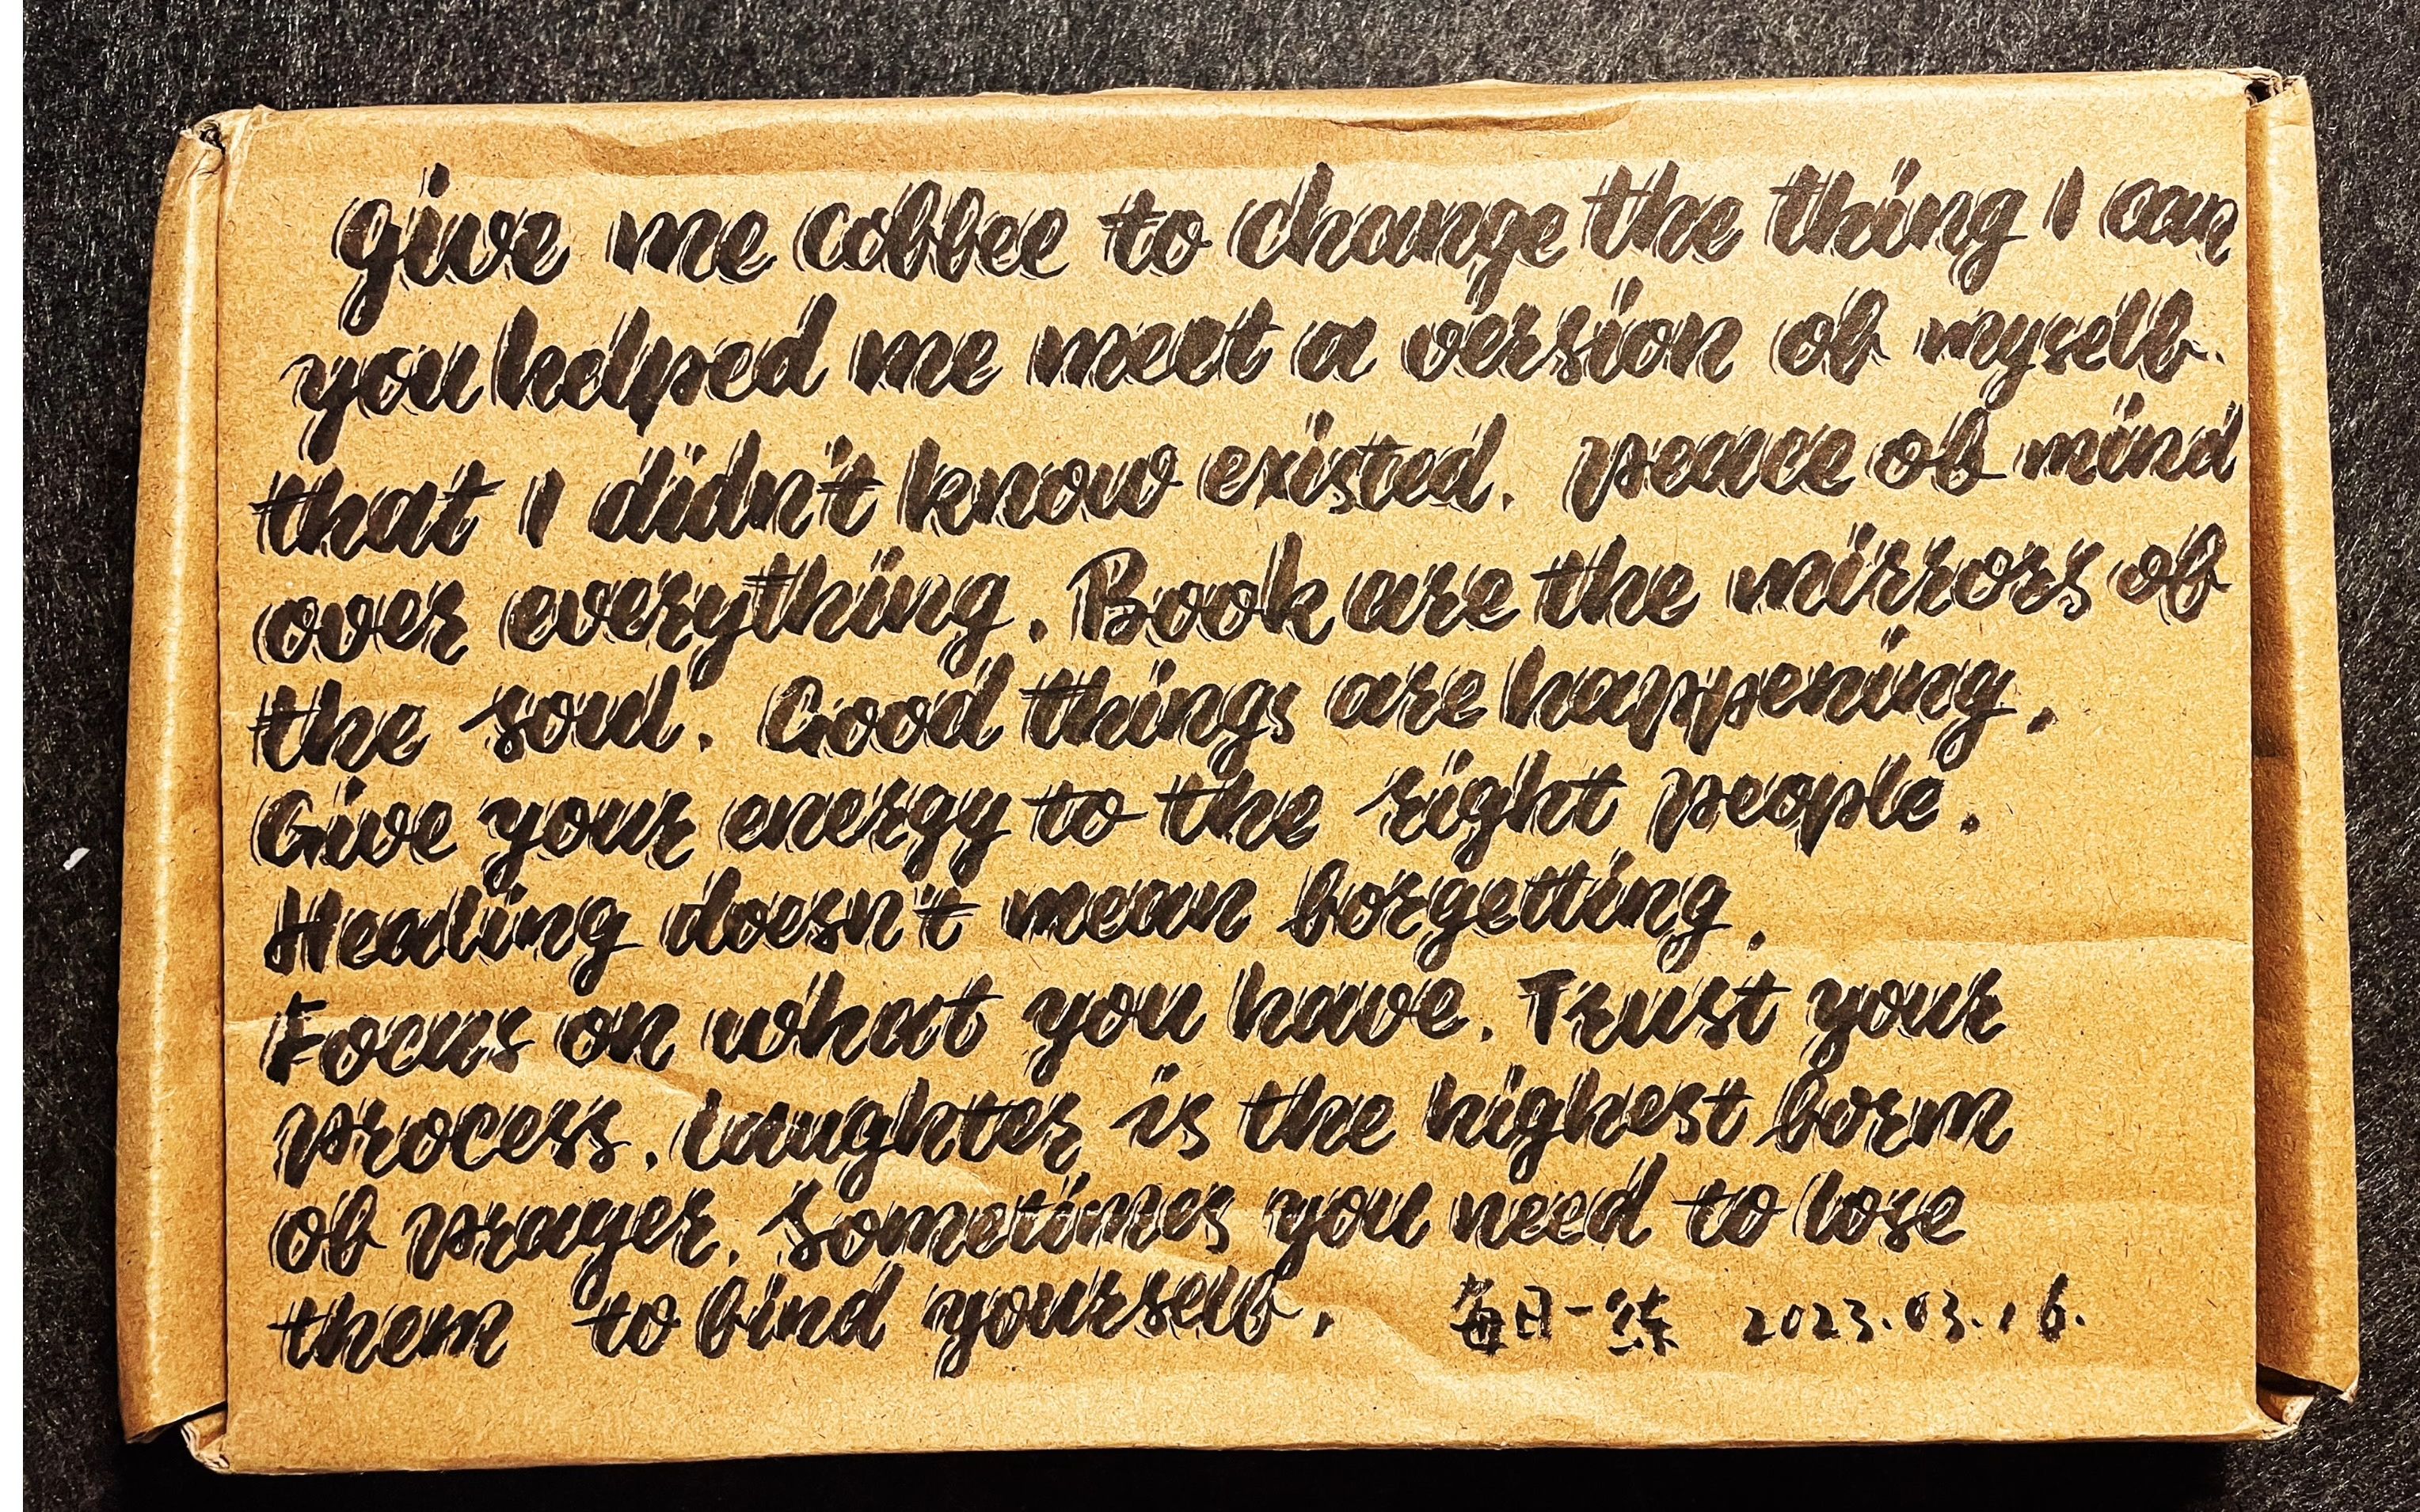 give me coffee to change the thing I can
you helped me meet a version of myself.
that I didn't know existed. peace of mind
over everything. Book are the mirrors of
the soul. Good things are happening.
Give your energy to the right people.
Healing doesn't mean forgetting.
Focus on what you have. Trust your
process. Laughter is the highest form
of prayer. Sometimes you need to lose
them to find yourself. 每日一练 2023.03.16.